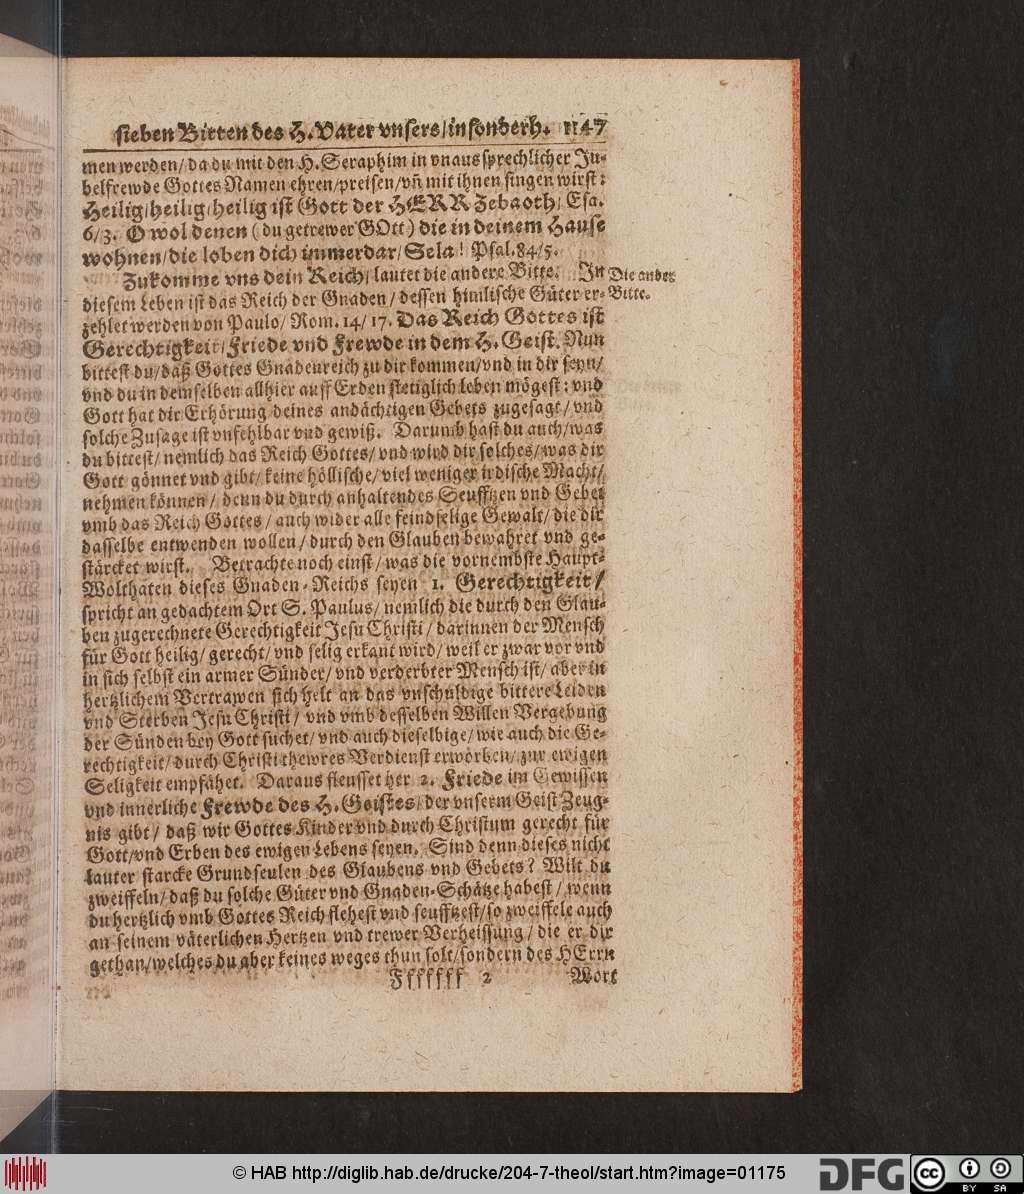 sieben Bitten des H. Vater vnsers/ insonderh. 1147
men werden/ da du mit den H. Seraphim in vnaussprechlicher Ju-
belfrewde Gottes Namen ehren/ preisen/ vñ mit ihnen singen wirst:
Heilig/ heilig/ heilig ist Gott der HERR Zebaoth/ Esa.
6/3. O wol denen (du getrewer GOtt) die in deinem Hause
wohnen/ die loben dich immerdar/ Sela! Psal. 84/5.
Zukomme vns dein Reich/ lautet die andere Bitte. In
Die ander
Bitte.
diesem Leben ist das Reich der Gnaden/ dessen himlische Güter er-
zehlet werden von Paulo/ Rom. 14/17. Das Reich Gottes ist
Gerechtigkeit/ Friede vnd Frewde in dem H. Geist. Nun
bittest du/ daß Gottes Gnadenreich zu dir kommen/ vnd in dir seyn/
vnd du in demselben allhier auff Erden stetiglich leben mögest: vnd
Gott hat dir Erhörung deines andächtigen Gebets zugesagt/ vnd
solche Zusage ist vnfehlbar vnd gewiß. Darumb hast du auch/ was
du bittest/ nemlich das Reich Gottes/ vnd wird dir solches/ was dir
Gott gönnet vnd gibt/ keine höllische/ viel weniger irdische Macht/
nehmen können/ denn du durch anhaltendes Seufftzen vnd Gebet
vmb das Reich Gottes/ auch wider alle feindselige Gewalt/ die dir
dasselbe entwenden wollen/ durch den Glauben bewahret vnd ge-
stärcket wirst. Betrachte noch einst/ was die vornembste Haupt-
Wolthaten dieses Gnaden-Reichs seyen 1. Gerechtigkeit/
spricht an gedachtem Ort S. Paulus/ nemlich die durch den Glau-
ben zugerechnete Gerechtigkeit Jesu Christi/ darinnen der Mensch
für Gott heilig/ gerecht/ vnd selig erkant wird/ weil er zwar vor vnd
in sich selbst ein armer Sünder/ vnd verderbter Mensch ist/ aber in
hertzlichem Vertrawen sich helt an das vnschuldige bittere Leiden
vnd Sterben Jesu Christi/ vnd vmb desselben Willen Vergebung
der Sünden bey Gott suchet/ vnd auch dieselbige/ wie auch die Ge-
rechtigkeit/ durch Christi thewres Verdienst erworben/ zur ewigen
Seligkeit empfähet. Daraus fleusset her 2. Friede im Gewissen
vnd innerliche Frewde des H. Geistes/ der vnserm Geist Zeug-
nis gibt/ daß wir Gottes Kinder vnd durch Christum gerecht für
Gott/ vnd Erben des ewigen Lebens seyen. Sind denn dieses nicht
lauter starcke Grundseulen des Glaubens vnd Gebets? Wilt du
zweiffeln/ daß du solche Güter vnd Gnaden-Schätze habest/ wenn
du hertzlich vmb Gottes Reich flehest vnd seufftzest/ so zweiffele auch
an seinem väterlichen Hertzen vnd trewer Verheissung/ die er dir
gethan/ welches du aber keines weges thun solt/ sondern des HErrn
Fffffff 2 Wort
© HAB http://diglib.hab.de/drucke/204-7-theol/start.htm?image=01175
DFG
cc
BY SA